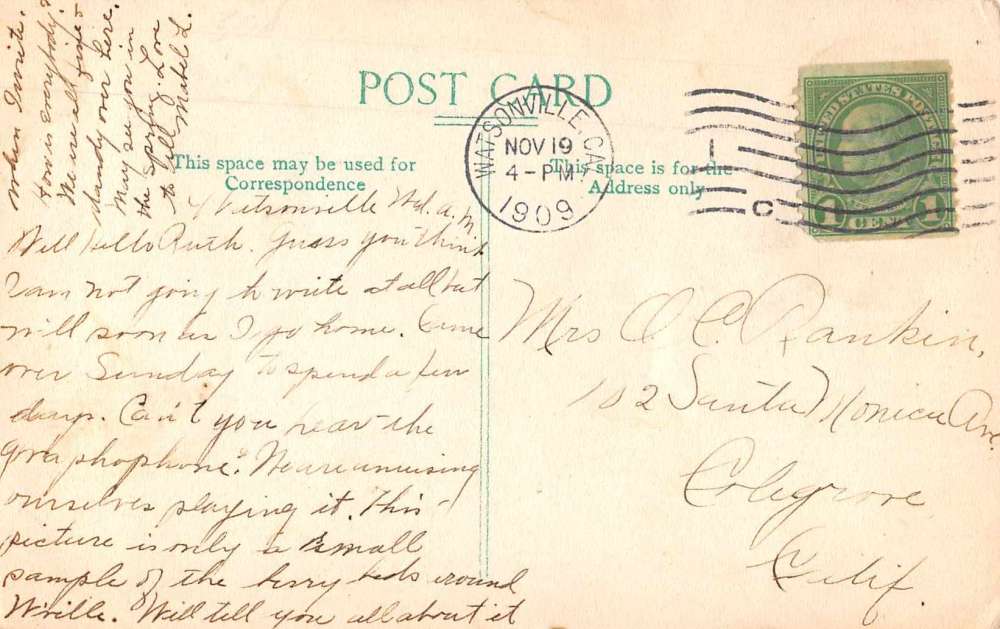 POST CARD
This space may be used for
Correspondence
This space is for the
Address only
WATSONVILLE, CAL.
NOV 19
4-PM
1909
C
UNITED STATES POSTAGE
1 CENT 1
Watsonville Wed. a.m.
Well hello Ruth. Guess you think
I am not going to write at all but
will soon as I go home. Came
over Sunday to spend a few
days. Can't you hear the
graphophone? We are amusing
ourselves playing it. This
picture is only a small
sample of the berry beds around
W'ville. Will tell you all about it
when I write.
How is everybody?
We are all fine &
dandy over here.
May see you in
the Spring. Love
to all. Mabel L.
Mrs O. C. Rankin,
102 Santa Monica Ave.
Colegrove
Calif.